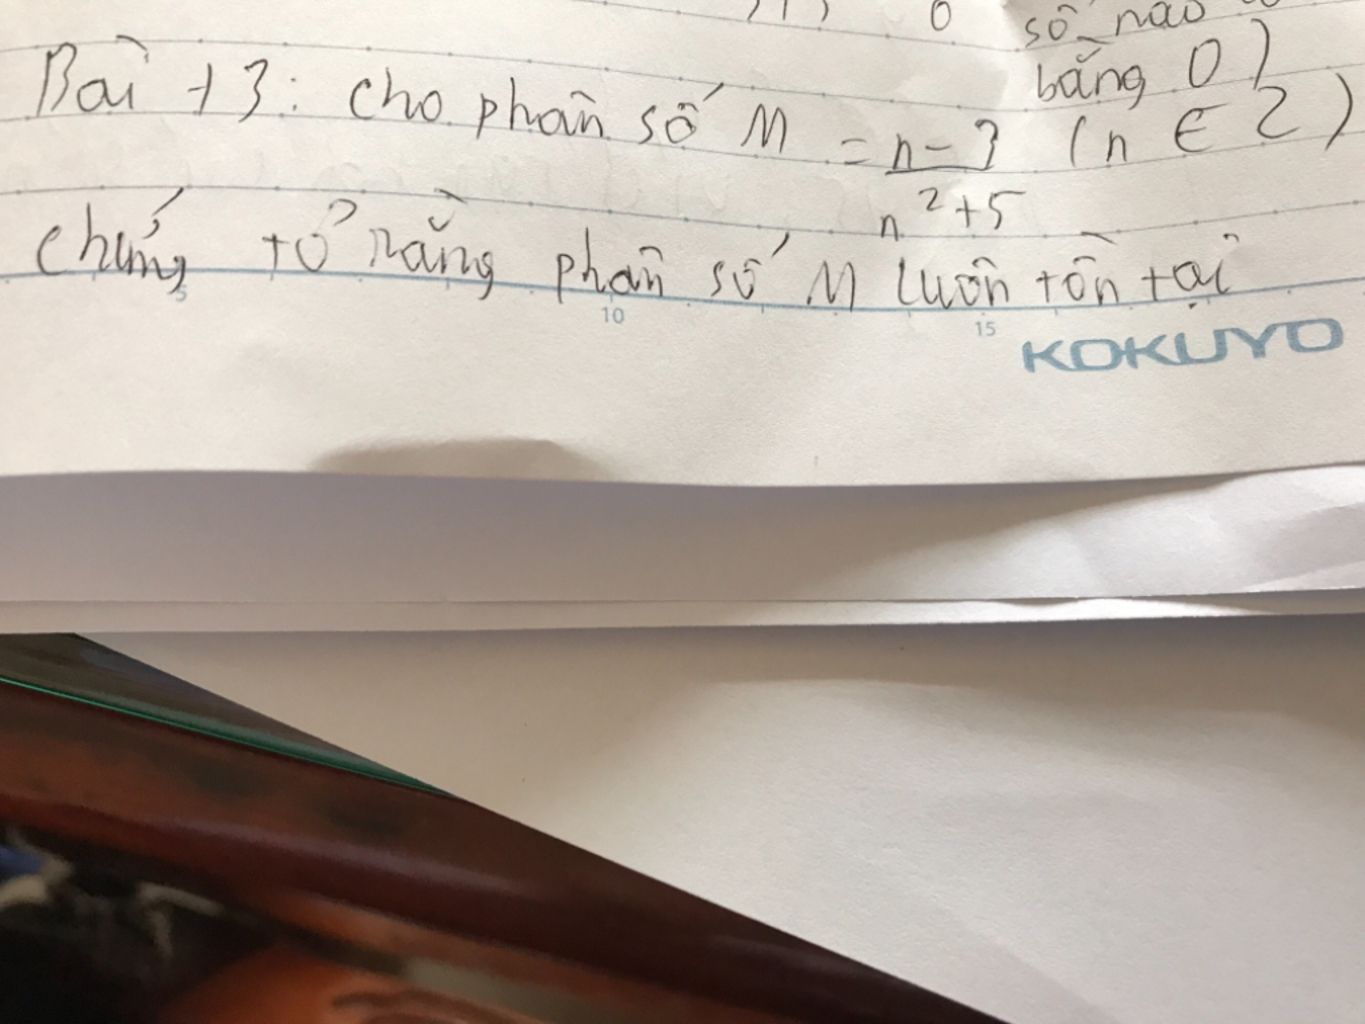 0 số nào
bằng 0)
Bài 13: cho phân số M = n-3 (n ∈ Z)
n²+5
chứng tỏ rằng phân số M luôn tồn tại
5 10 15
KOKUYO